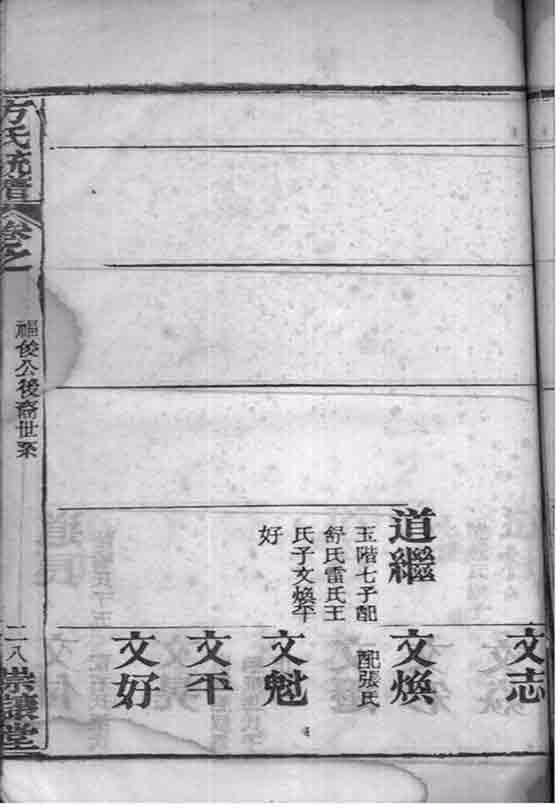 文志
道繼
玉階七子配
舒氏雷氏王
氏子文煥平
好
文煥
配張氏
文魁
文平
文好
方氏統
卷之一
福俊公後裔世系
二八
崇讓堂